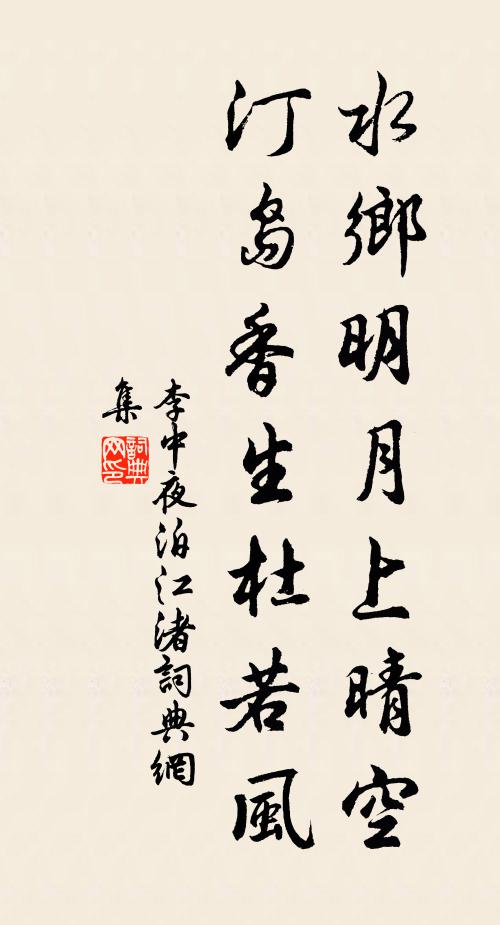 水鄉明月上晴空
汀島香生杜若風
李中夜泊江渚詞典網
集
詞典網印